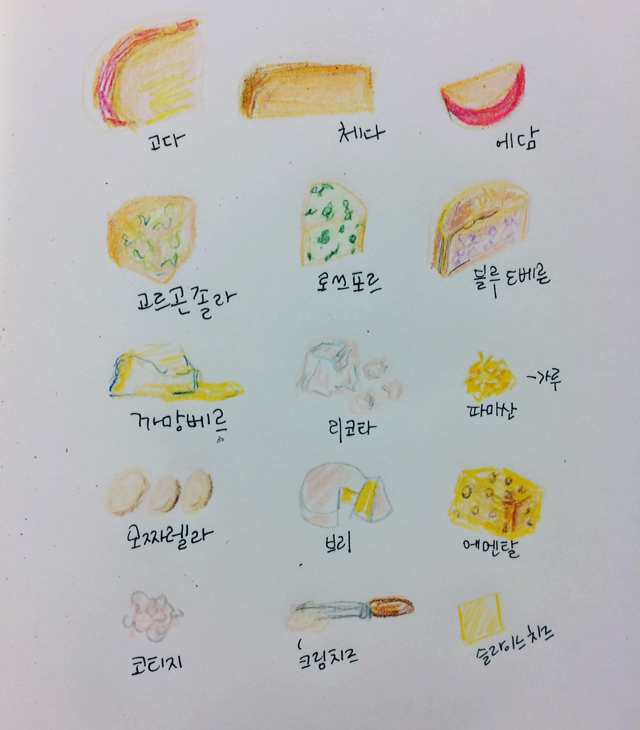 고다
체다
에담
고르곤졸라
로쓰포르
블루 드베른
까망베르
리코타
파마산
→가루
모짜렐라
브리
에멘탈
코티지
크림치즈
슬라이스치즈